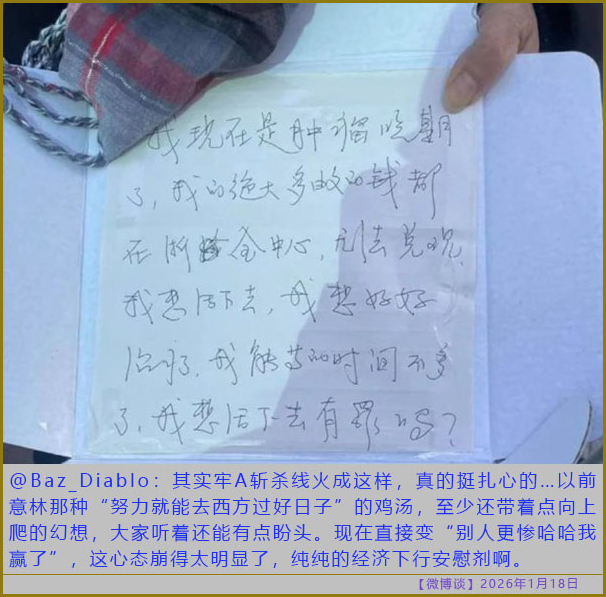 我现在是肿瘤晚期
了，我的绝大多数的钱都
在浙金中心，无法兑现，
我想活下去，我想好好
治病，我能等的时间不多
了，我想活下去有罪吗？
@Baz_Diablo：其实牢A斩杀线火成这样，真的挺扎心的…以前
意林那种“努力就能去西方过好日子”的鸡汤，至少还带着点向上
爬的幻想，大家听着还能有点盼头。现在直接变“别人更惨哈哈我
赢了”，这心态崩得太明显了，纯纯的经济下行安慰剂啊。
【微博谈】2026年1月18日